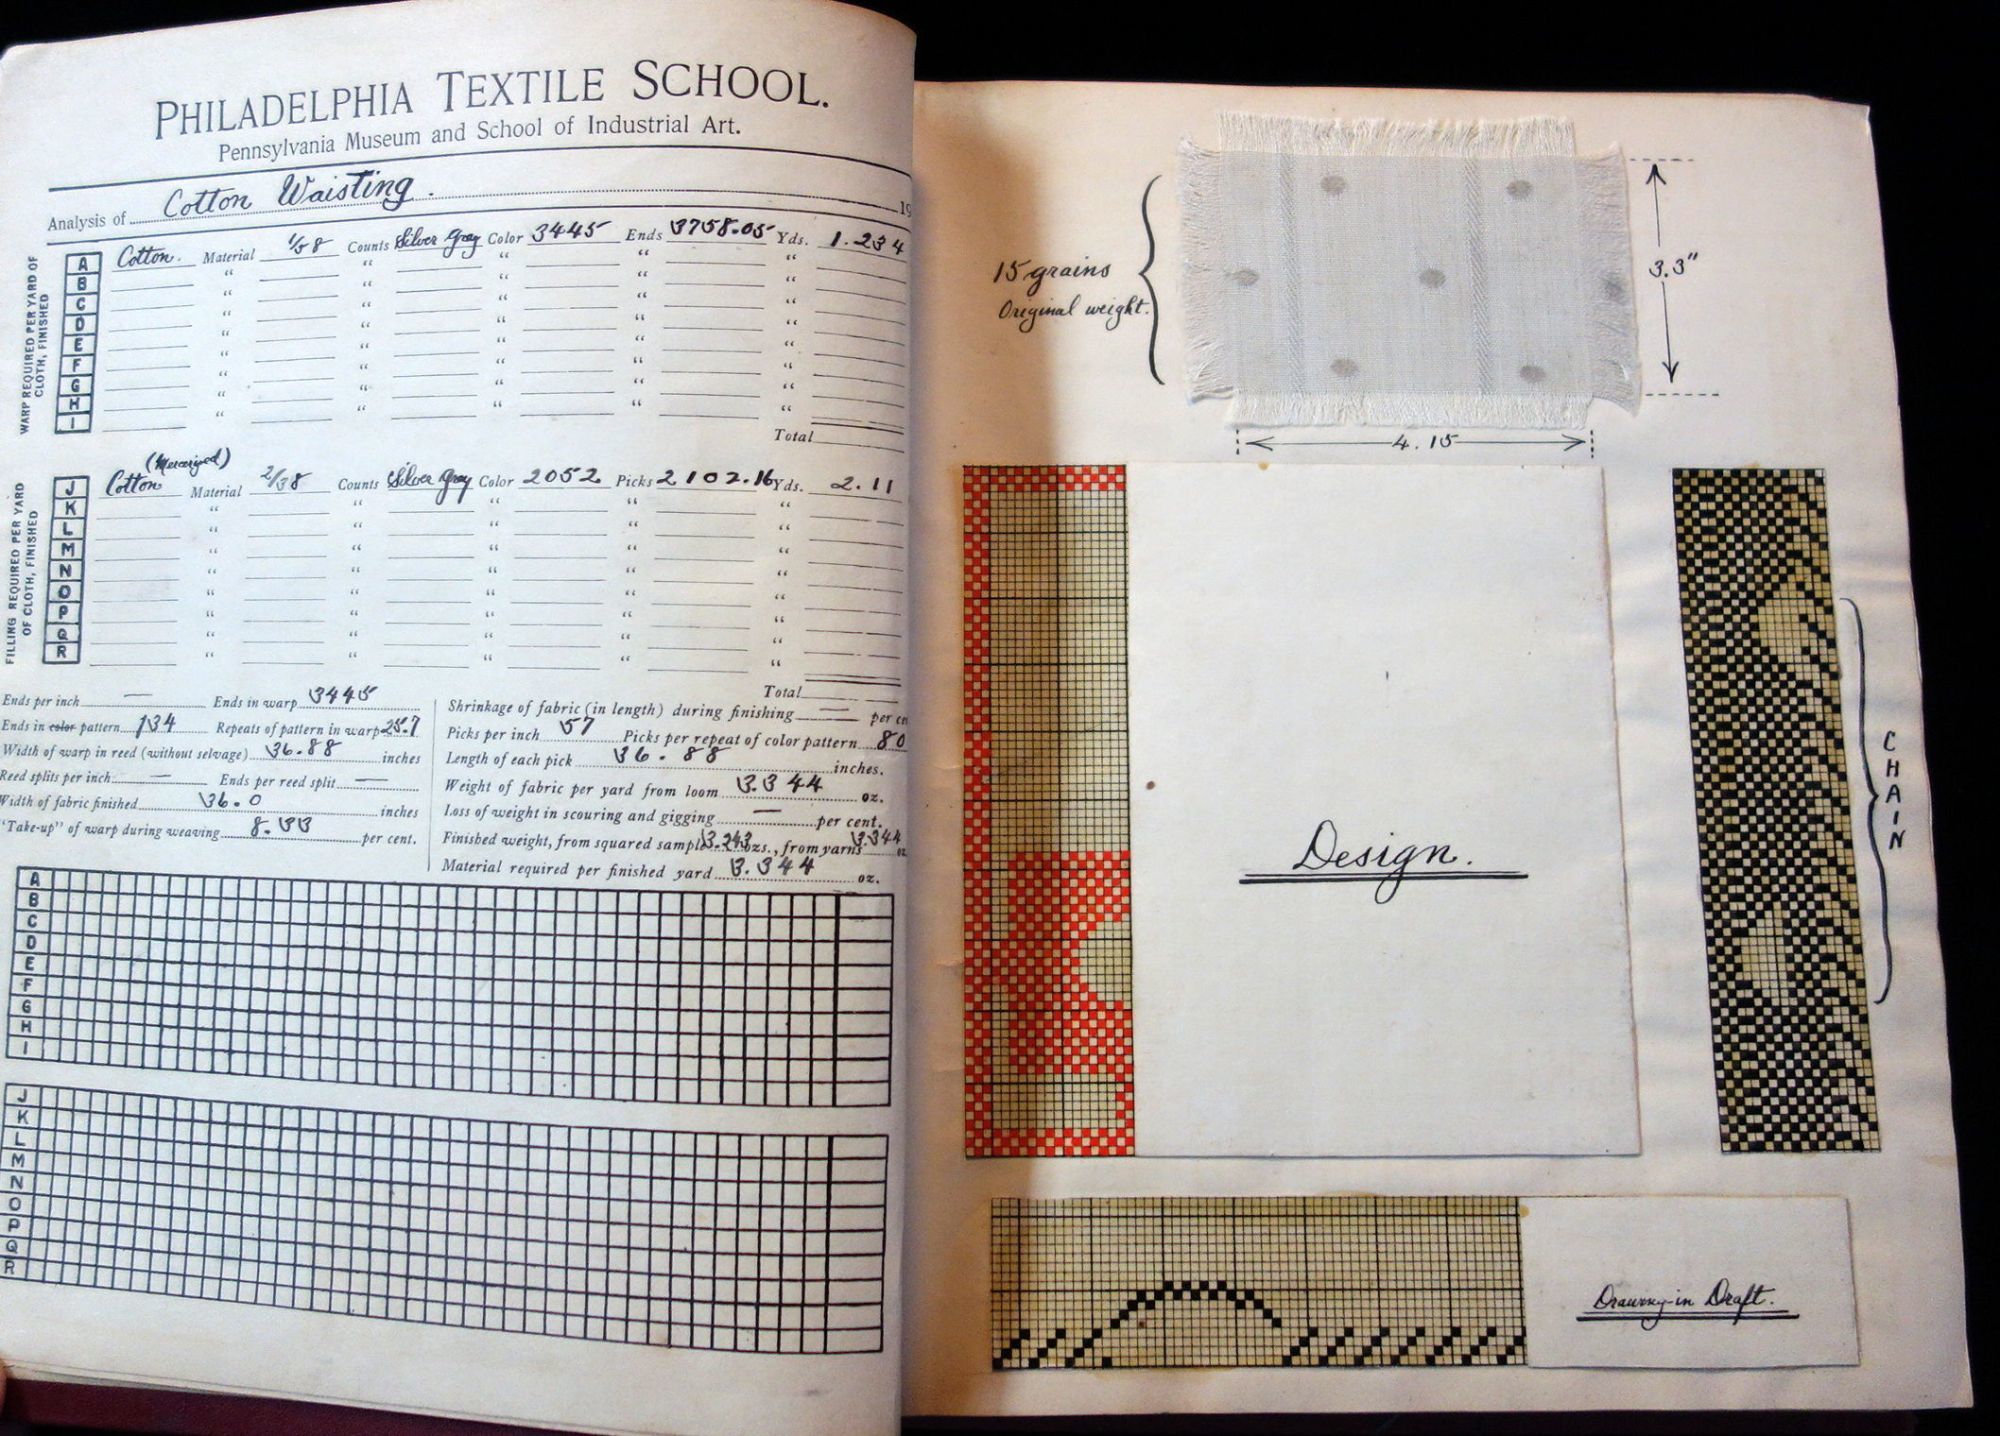 PHILADELPHIA TEXTILE SCHOOL.
Pennsylvania Museum and School of Industrial Art.
Analysis of Cotton Waisting. 19
WARP REQUIRED PER YARD OF CLOTH, FINISHED
A Cotton. Material 1/38 Counts Silver Gray Color 3445 Ends 3758.05 Yds. 1.234
B " " " " "
C " " " " "
D " " " " "
E " " " " "
F " " " " "
G " " " " "
H " " " " "
I " " " " "
Total
(Mercerized)
FILLING REQUIRED PER YARD OF CLOTH, FINISHED
J Cotton Material 2/38 Counts Silver Gray Color 2052 Picks 2102.16 Yds. 2.11
K " " " " "
L " " " " "
M " " " " "
N " " " " "
O " " " " "
P " " " " "
Q " " " " "
R " " " " "
Total
Ends per inch — Ends in warp 3445
Ends in color pattern 134 Repeats of pattern in warp 25.7
Width of warp in reed (without selvage) 36.88 inches
Reed splits per inch — Ends per reed split —
Width of fabric finished 36.0 inches
"Take-up" of warp during weaving 8.33 per cent.
Shrinkage of fabric (in length) during finishing — per ce
Picks per inch 57 Picks per repeat of color pattern 80
Length of each pick 36.88 inches.
Weight of fabric per yard from loom 3.344 oz.
Loss of weight in scouring and gigging — per cent.
Finished weight, from squared sample 3.243 ozs., from yarns 3.344 oz.
Material required per finished yard 3.344 oz.
A
B
C
D
E
F
G
H
I
J
K
L
M
N
O
P
Q
R
15 grains
Original weight.
3.3"
4.15
Design.
CHAIN
Drawing-in Draft.